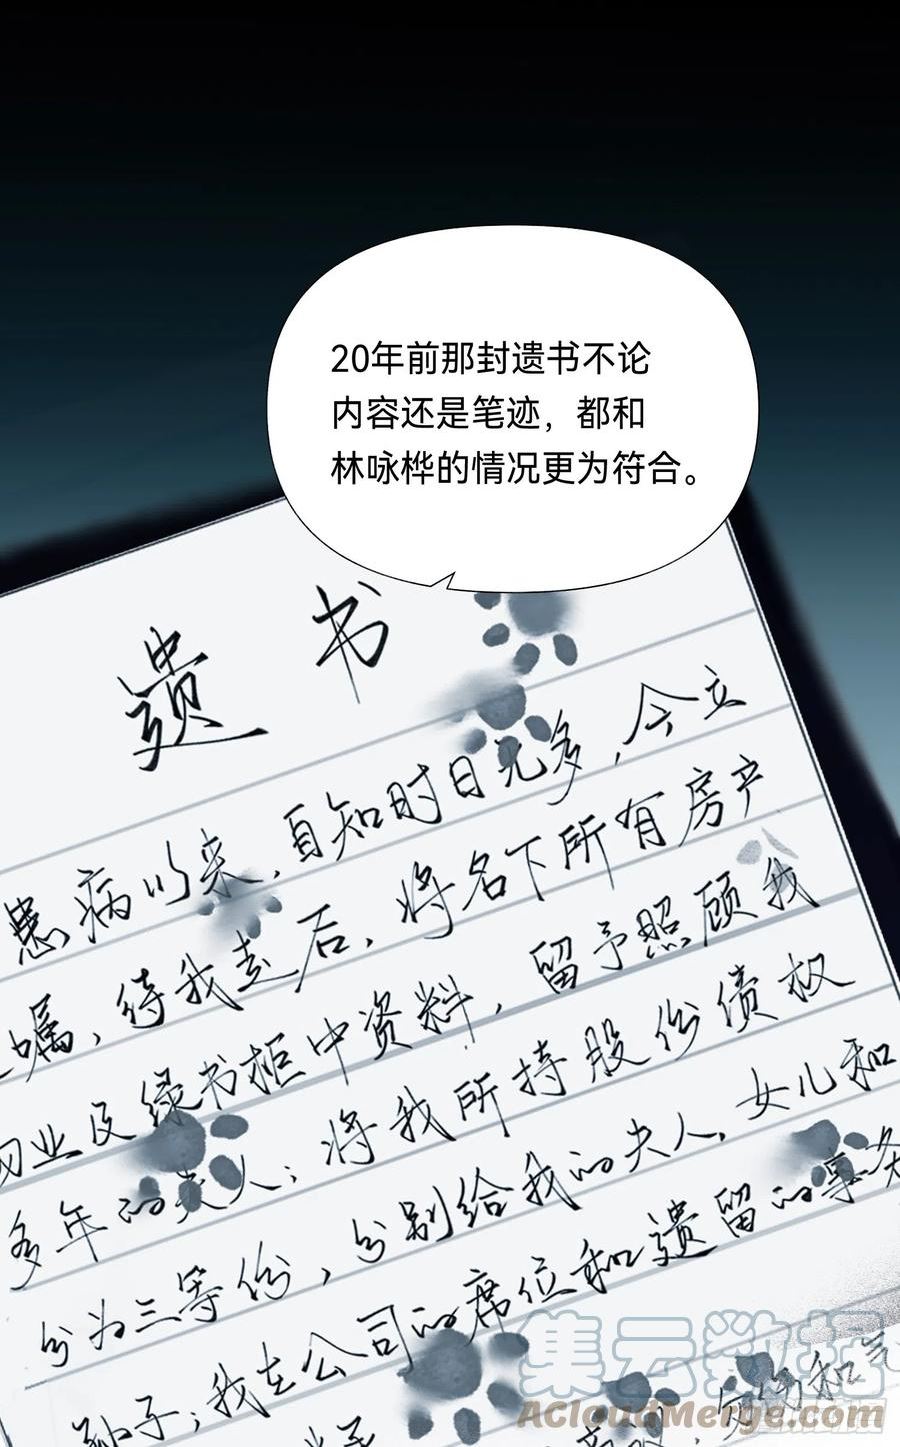 20年前那封遗书不论
内容还是笔迹，都和
林咏桦的情况更为符合。
遗书
患病以来，自知时日无多，今立
嘱，待我走后，将名下所有房产
物业及绿书柜中资料，留予照顾我
多年的夫人；将我所持股份债权
分为三等份，分别给我的夫人、女儿和
孙子；我在公司的席位和遗留的事务
集云数据
AcloudMerge.com